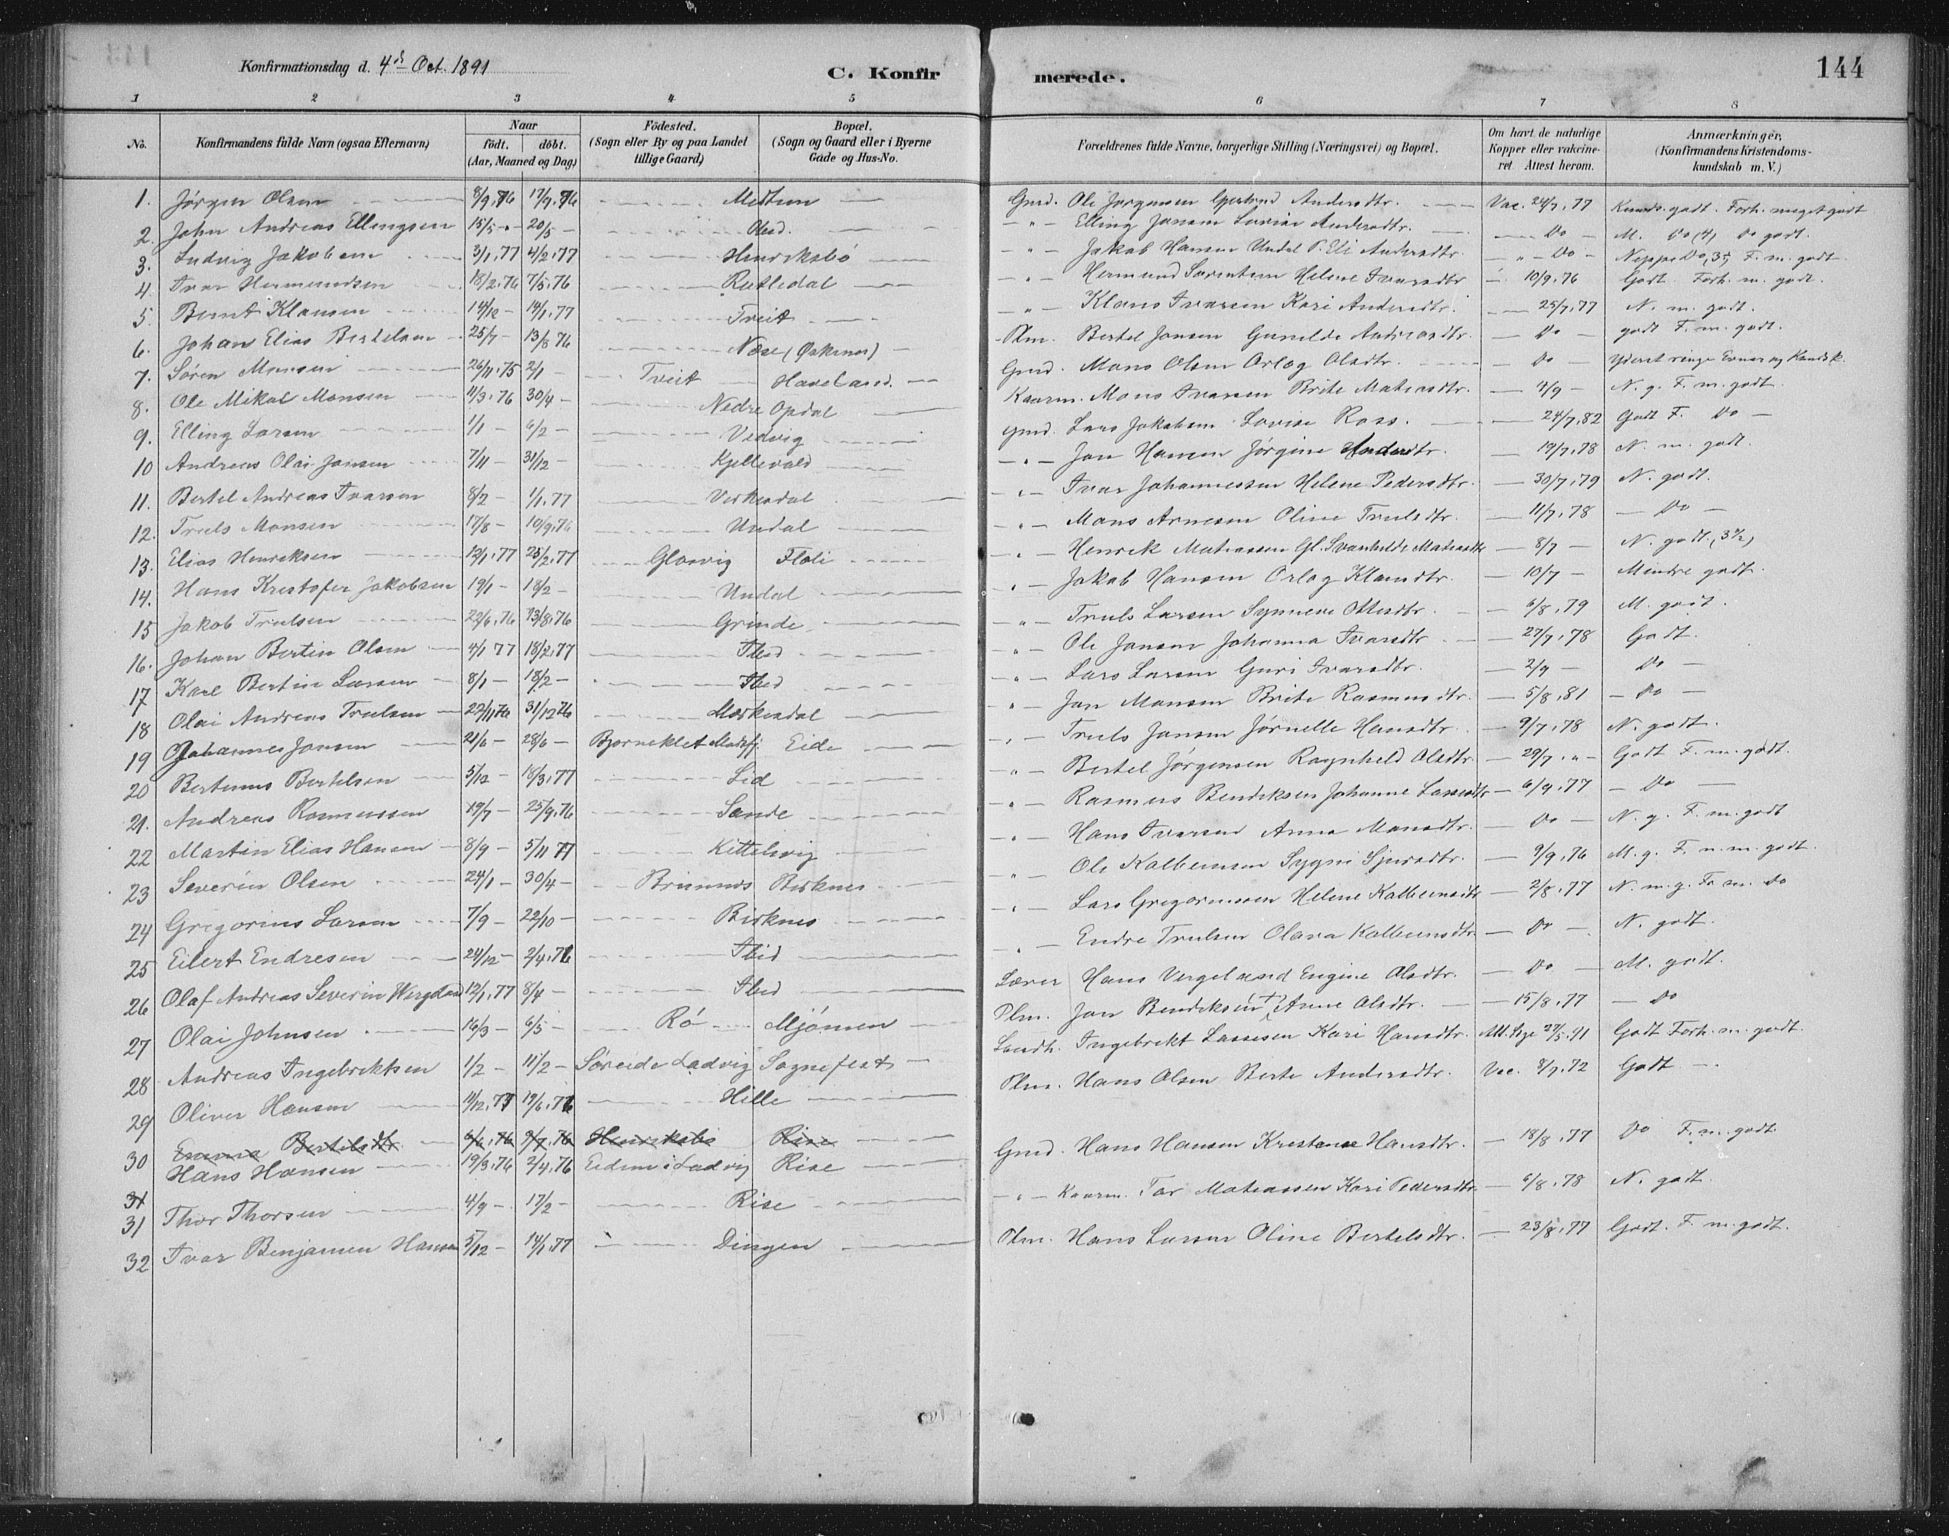 Konfirmationsdag d. 4de Oct. 1891
C. Konfir
merede.
144
1 2 3 4 5 6 7 8
No.
Konfirmandens fulde Navn (ogsaa Efternavn)
Naar
födt. döbt.
(Aar, Maaned og Dag)
Födested.
(Sogn eller By og paa Landet tillige Gaard)
Bopæl.
(Sogn og Gaard eller i Byerne Gade og Hus-No.
Forældrenes fulde Navne, borgerlige Stilling (Næringsvei) og Bopæl.
Om havt de naturlige Kopper eller vakcineret. Attest herom.
Anmærkninger,
(Konfirmandens Kristendomskundskab m. V.)
1. Jørgen Olsen 8/9,76 17/9,76 Midtun Gmd. Ole Jørgensen Gjertrud Andersdtr. Vac. 24/7,77 Kunds. godt. Forh. meget godt
2. John Andreas Ellingsen 15/5 - 20/5 - Elling Jansen Lovise Andersdtr. Do M. Do (4) Do godt.
3. Ludvig Jakobsen 3/1,77 4/2,77 Henriksbø Jakob Hansen Undal P. Eli Andersdtr. Do Neppe Do, 35, F. m. godt
4. Ivar Hermundsen 18/2,76 7/5,76 Rutledal Hermund Sørensen Helene Ivarsdtr 10/9,76 Godt Forh. m. godt.
5. Bernt Klausen 14/12 - 14/1,77 Tveit Klaus Ivarsen Kari Andersdtr. 25/7,77 N. m. godt.
6. Johan Elias Bertelsen 25/7 - 13/8 76 Næse (Oskenes) Plm. Bertel Jonsen Gunilde Andreasdtr. Do godt F. m. godt.
7. Søren Monsen 26/11,75 2/1 - Tveit Haveland Gmd. Mons Olsen Orlog Olsdtr. Do Yderst ringe Evner og Kundsk.
8. Ole Mikal Monsen 4/3,76 30/4 - Nedre Opdal Kaarm. Mons Ivarsen Brite Matiasdtr. 4/9 - N. g. F. m. godt
9. Elling Larsen 1/1 - 6/2 - Vedvig Gmd. Lars Jakobsen Lovise Ross. 24/7,82 Godt F. Do -
10 Andreas Olai Jansen 7/11 - 31/12 - Kjellevold Jan Hansen Jørgine Andersdtr. 19/7,78 N. m. godt.
11. Bertel Andreas Ivarsen 8/2 - 1/1,77 Verkesdal Ivar Johannessen Helene Pedersdtr. 30/7,79 N. godt.
12. Truls Monsen 17/8 - 10/9,76 Undal Mons Arnesen Oline Trulsdtr. 11/7,78 - Do -
13. Elias Henriksen 13/1,77 25/2,77 Glosvig Floli Henrik Matiassen Gl. Svanhilde Matiasdtr 8/7 - N. godt, (3½)
14. Hans Kristofer Jakobsen 19/1 - 18/2 - Undal Jakob Hansen Orlog Klausdtr. 10/7 - Mindre godt.
15 Jakob Trulsen 22/6,76 13/8,76 Grinde Truls Larsen Synneve Ottesdtr. 6/8,79 M. godt.
16. Johan Bertin Olsen 4/1 77 18/2,77 Ibid Ole Jansen Johanna Ivarsdtr 27/7,78 Godt.
17 Karl Bertin Larsen 8/1 - 18/2 - Ibid Lars Larsen Guri Ivarsdtr. 2/9 - Do -
18 Olai Andreas Trulsen 22/11 76 31/12 76 Mørkesdal Jan Monsen Brite Rasmusdtr. 5/8,81 - Do -
19 Johannes Jonsen 21/6 - 28/6 - Bjorneklet Eide Truls Jansen Jørnelle Hansdtr. 9/7,78 N. godt.
20 Bertinus Bertelsen 5/12 - 18/3,77 Lid Bertel Jørgensen Ragnhild Olsdtr. 29/7 „ - Godt F. m. godt.
21. Andreas Rasmussen 19/7 - 25/9,76 Sande Rasmus Bendiksen Johanne Lassesdtr 6/9,77 - Do -
22 Martin Elias Hansen 8/9 - 5/11 77 Kittelsvig Hans Ivarsen Anna Monsdtr. Do - N. g. F. m. godt
23 Severin Olsen 24/1 - 30/4 - Birknes Ole Kolbensen Sygni Sjursdtr. 9/9,76 M. g. F. n. m. godt.
24 Gregorius Larsen 7/9 - 22/10 - Birknes Lars Gregoriussen Helene Kolbensdtr 2/8,77 N. m. g. F. m. Do
25 Eilert Endresen 24/12 - 2/4,76 Ibid Endre Trulsen Olava Kolbensdtr. Do - N. godt.
26 Olaf Andreas Severin Vergeland 12/1,77 8/4 - Ibid Lærer Hans Vergeland Engine Olsdtr. Do - M. godt.
27 Olai Johnsen 16/3 - 6/5 - Rö Mjömen Plm. Jan Bendiksen Anne Olsdtr. 15/8,77 - Do
28 Andreas Ingebriktsen 1/2 - 11/2 - Søreide Ladvig Sognefest Landh. Ingebrikt Lassesen Kari Hansdtr. 27/5,91 Godt Forh. m. godt.
29 Oliver Hansen 11/12,77 19/6,76 Hille Plm. Hans Olsen Berte Andersdtr. Vac. 8/7,72 Godt -
30 Emma Bertelsdtr 6/6,76 9/7,76 Henriksbø Rise
Hans Hansen 19/3,76 2/4,76 Eidem i Ladvig Rise Gmd. Hans Hansen Kristense Hansdtr. 18/8,77 Do F. m. godt
31
31 Thor Thorsen 4/9 - 17/2 - Rise Kaarm. Tor Matiassen Kari Pedersdtr 6/8,78 N. godt.
32 Ivar Benjamin Hansen 5/12 - 14/1,77 Dingen Plm. Hans Larsen Oline Bertelsdtr. 23/8,77 Godt. F. m. godt.